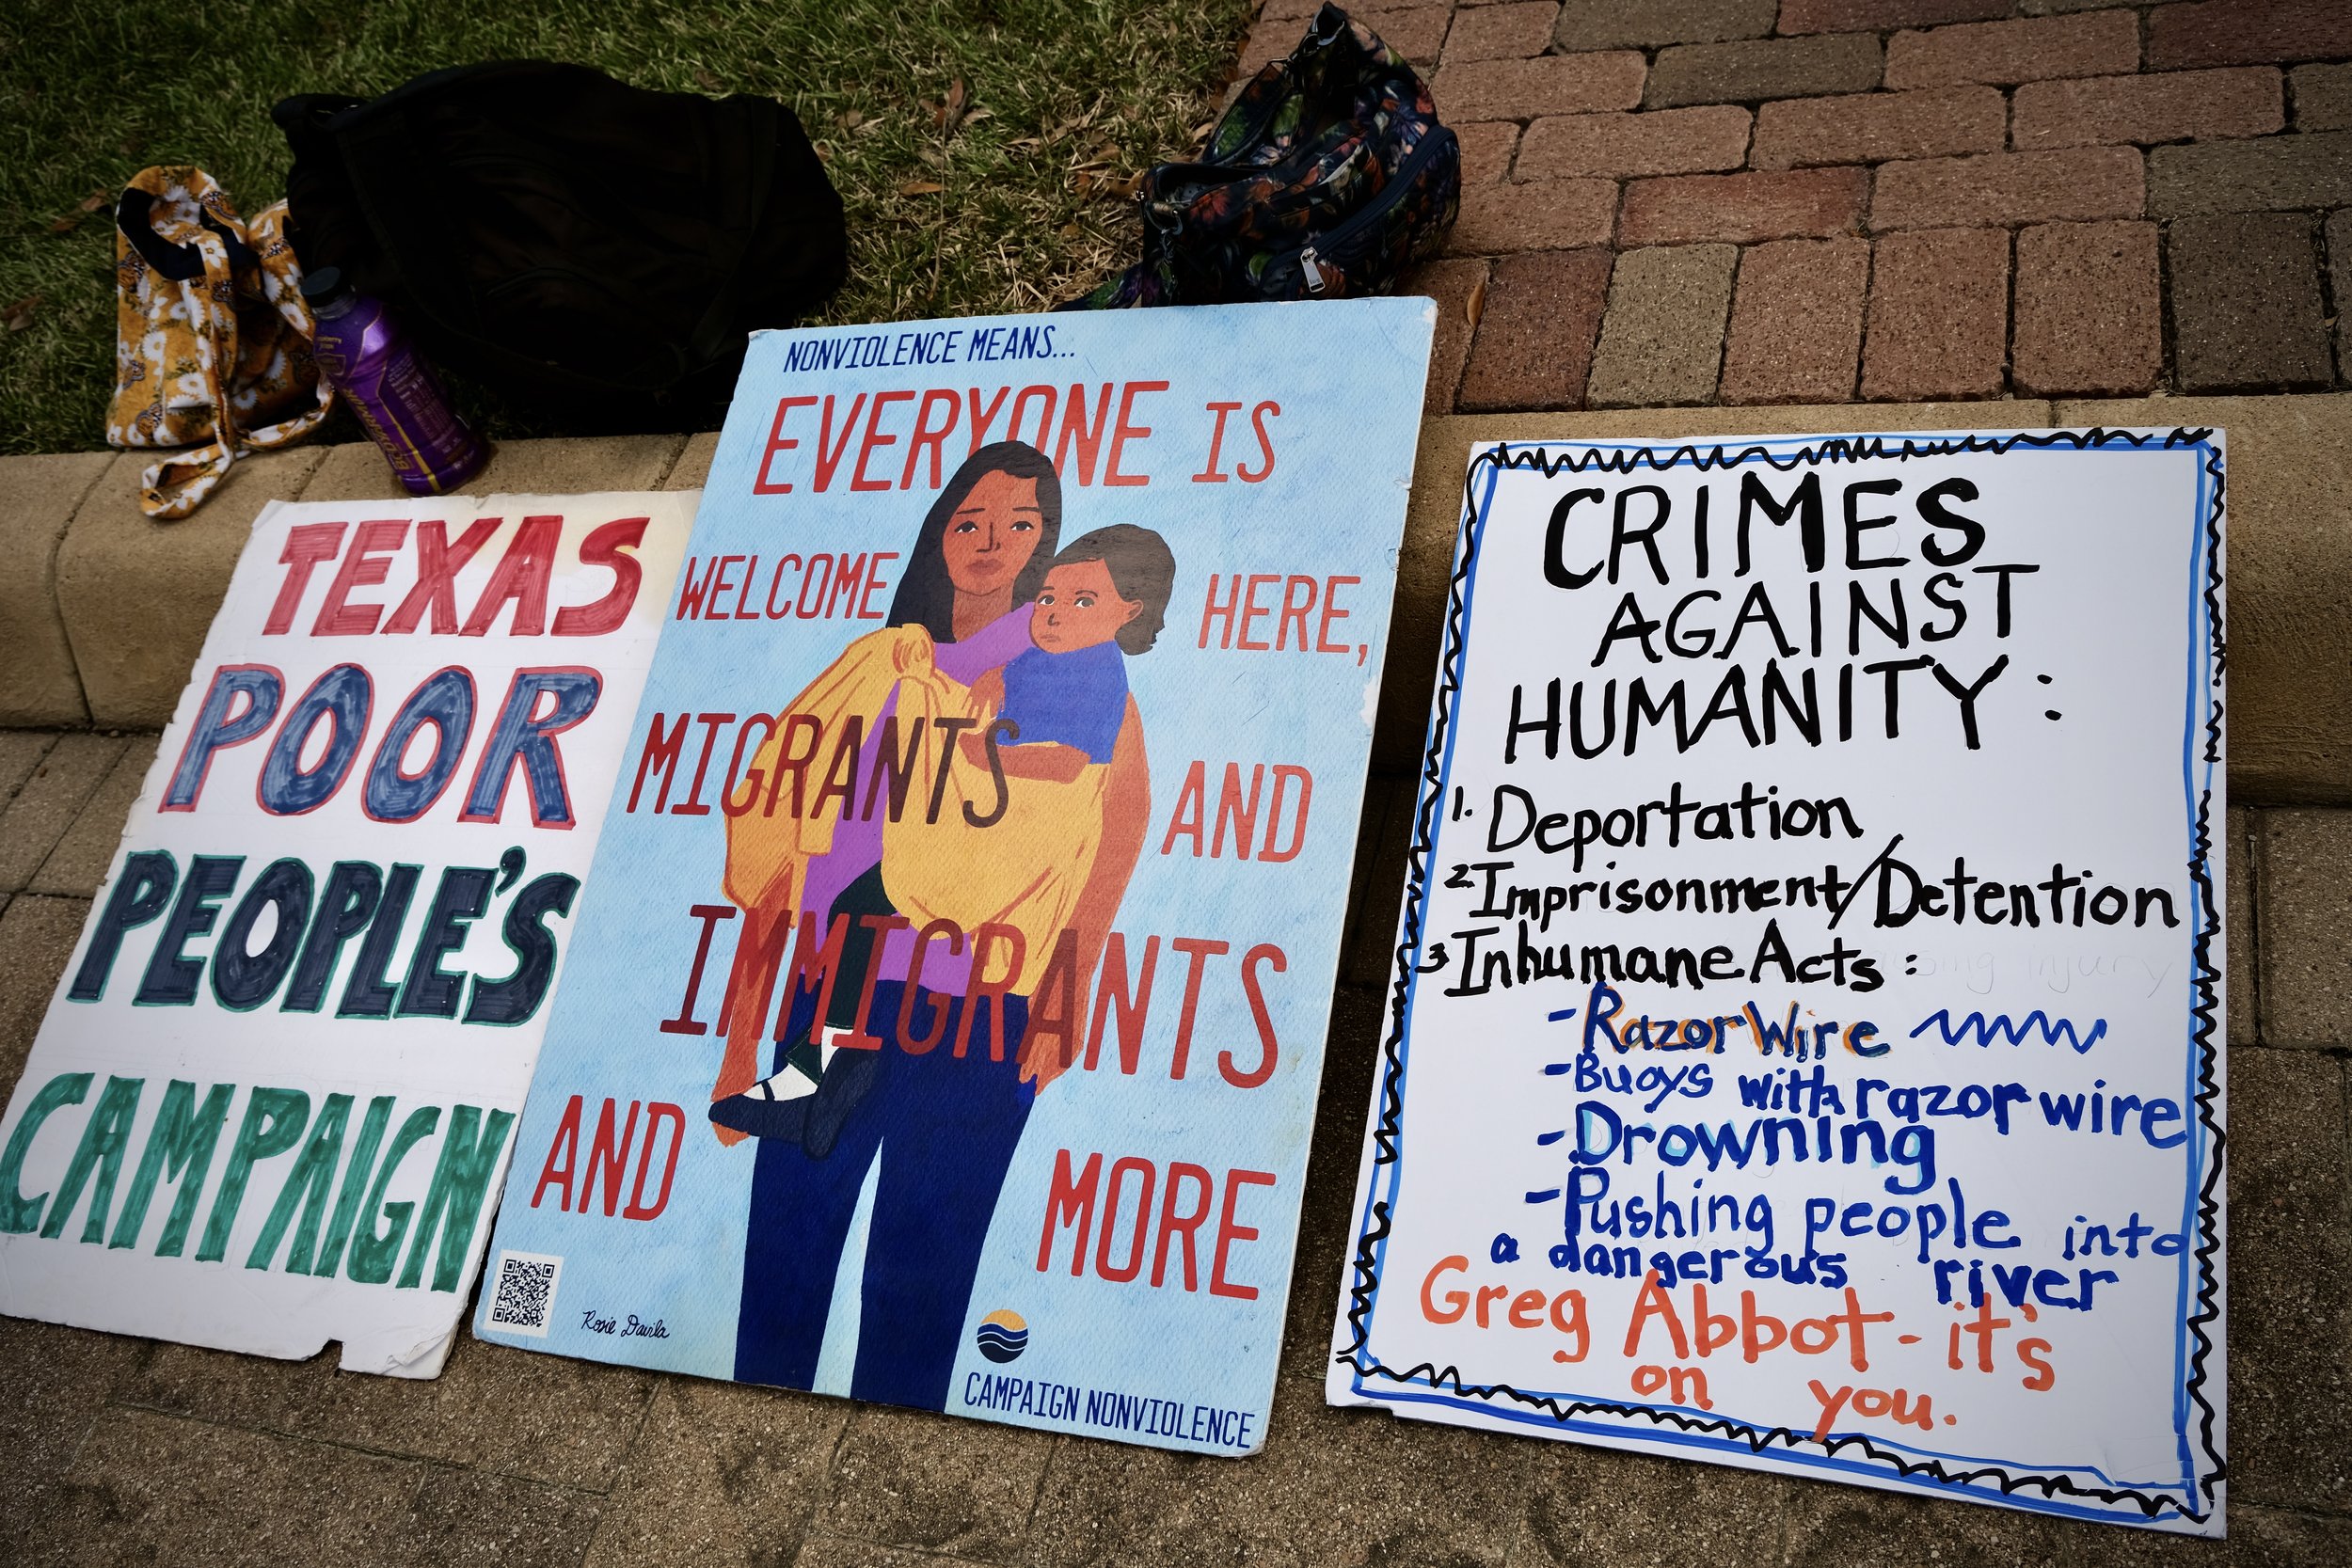 TEXAS
POOR
PEOPLE'S
CAMPAIGN
NONVIOLENCE MEANS...
EVERYONE IS
WELCOME HERE,
MIGRANTS AND
IMMIGRANTS
AND MORE
Rosie Davila
CAMPAIGN NONVIOLENCE
CRIMES
AGAINST
HUMANITY:
1. Deportation
2. Imprisonment/Detention
3 Inhumane Acts:
- Razor Wire
- Buoys with razor wire
- Drowning
- Pushing people into
a dangerous river
Greg Abbot - it's
on you.